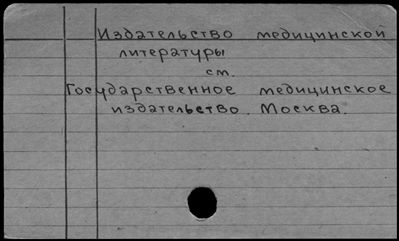 Издательство медицинской
литературы
см.
Государственное медицинское
издательство. Москва.